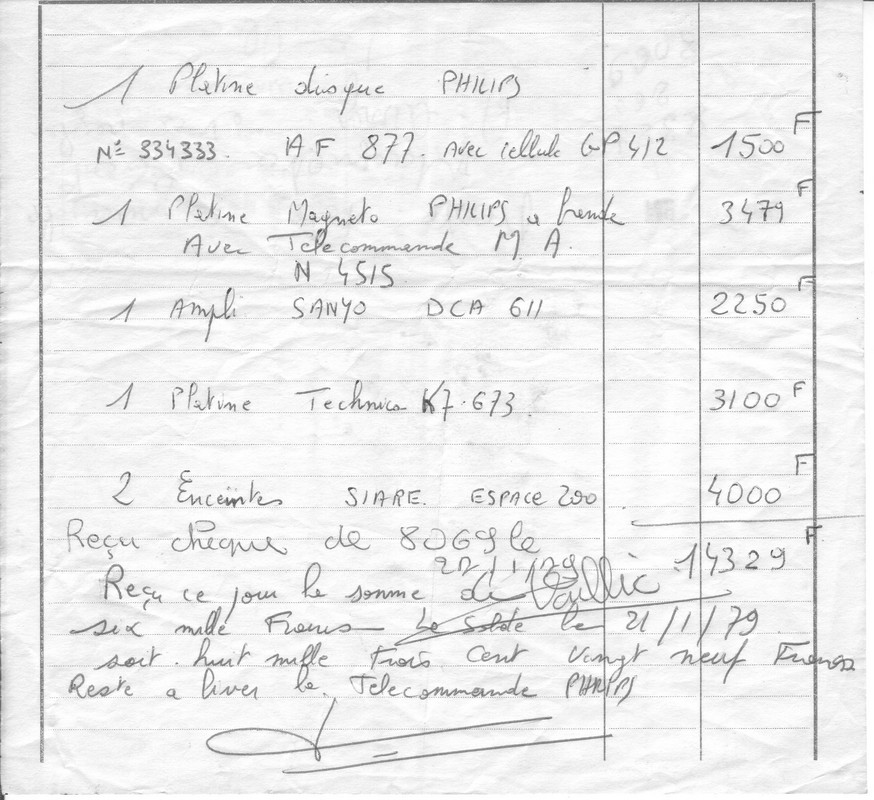 1 Platine disque PHILIPS
N° 334333. AF 877. Avec cellule GP 412 1500 F
1 Platine Magneto PHILIPS a bande 3479 F
Avec Telecommande M A.
N 4515
1 Ampli SANYO DCA 611 2250 F
1 Platine Technics K7.673. 3100 F
2 Enceintes SIARE. ESPACE 200 4000 F
Reçu chèque de 8069 le 14329 F
22/1/79
Reçu ce jour la somme de
six mille Francs Le Solde le 21/1/79
soit. huit mille Trois Cent Vingt neuf Francs
Reste a livrer la Telecommande PHILIPS